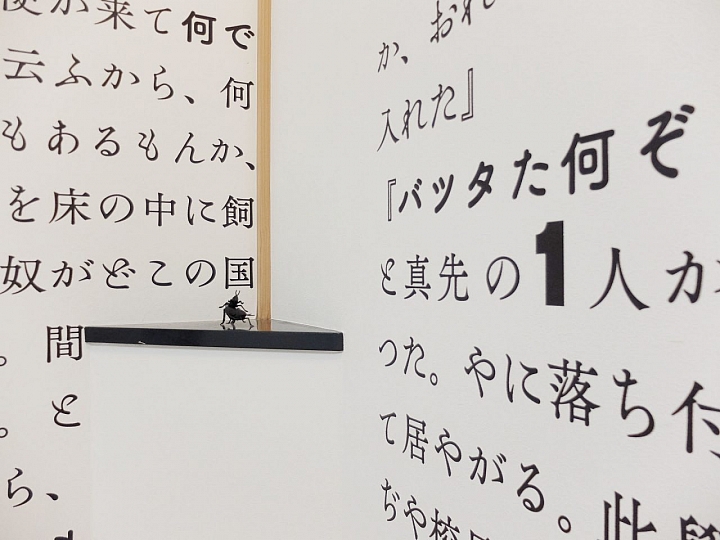 が来て何で
云ふから、何
もあるもんか、
を床の中に飼
奴がどこの国
。間
。と
ら、
か、おれ
入れた』
『バッタた何ぞ
と真先の1人が
つた。やに落ち付
て居やがる。
ぢや校
此